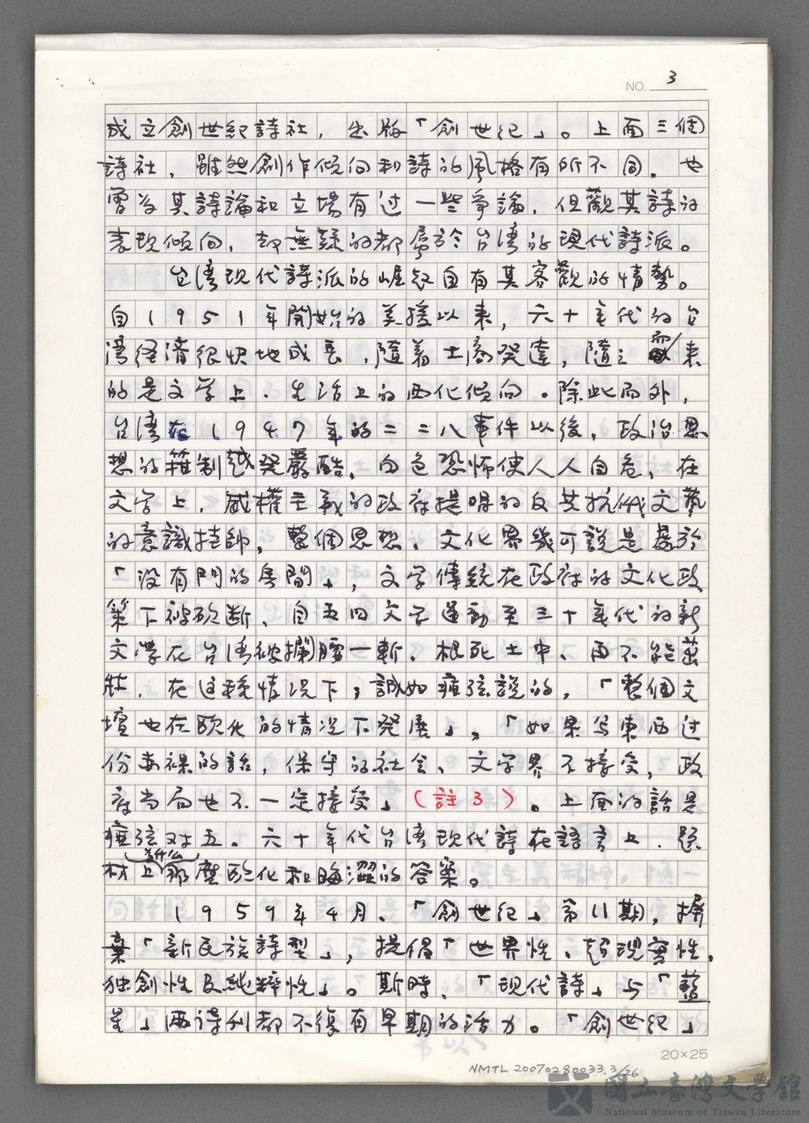 NO. 3
成立創世紀詩社，出版「創世紀」。上面三個
詩社，雖然創作傾向和詩的風格有所不同，也
曾為其詩論和立場有过一些爭論，但觀其詩的
表現傾向，却無疑的都屬於台湾的現代詩派。
台湾現代詩派的崛起自有其客觀的情勢。
自1951年開始的美援以來，六十年代的台
湾經濟很快地成長，隨着工商発達，隨之而來
的是文学上、生活上的西化傾向。除此而外，
台湾在1947年的二二八事件以後，政治思
想的箝制越発嚴酷，白色恐怖使人人自危，在
文学上，威權主義的政府提唱的反共抗俄文藝
的意識掛帥，整個思想、文化界幾可說是處於
「没有門的房間」，文学傳統在政府的文化政
策下被砍断，自五四文学運動至三十年代的新
文学在台湾被攔腰一斬，根死土中，再不能茁
壯，在这種情况下；誠如瘂弦說的，「整個文
壇也在欧化的情况下発展」。「如果写東西过
份赤裸的話，保守的社会、文学界不接受，政
府当局也不一定接受」（註3）。上面的話是
瘂弦对五。六十年代台湾現代詩在語言上、題
為什么
材上那麼欧化和晦澀的答案。
1959年4月、「創世紀」第11期，摒
棄「新民族詩型」，提倡「世界性、超現實性、
独創性及純粹性」。斯時，「現代詩」与「藍
星」兩詩刊都不復有早期的活力。「創世紀」
20×25
NMTL 20070280033.3/26
國立臺灣文學館
National Museum of Taiwan Literature